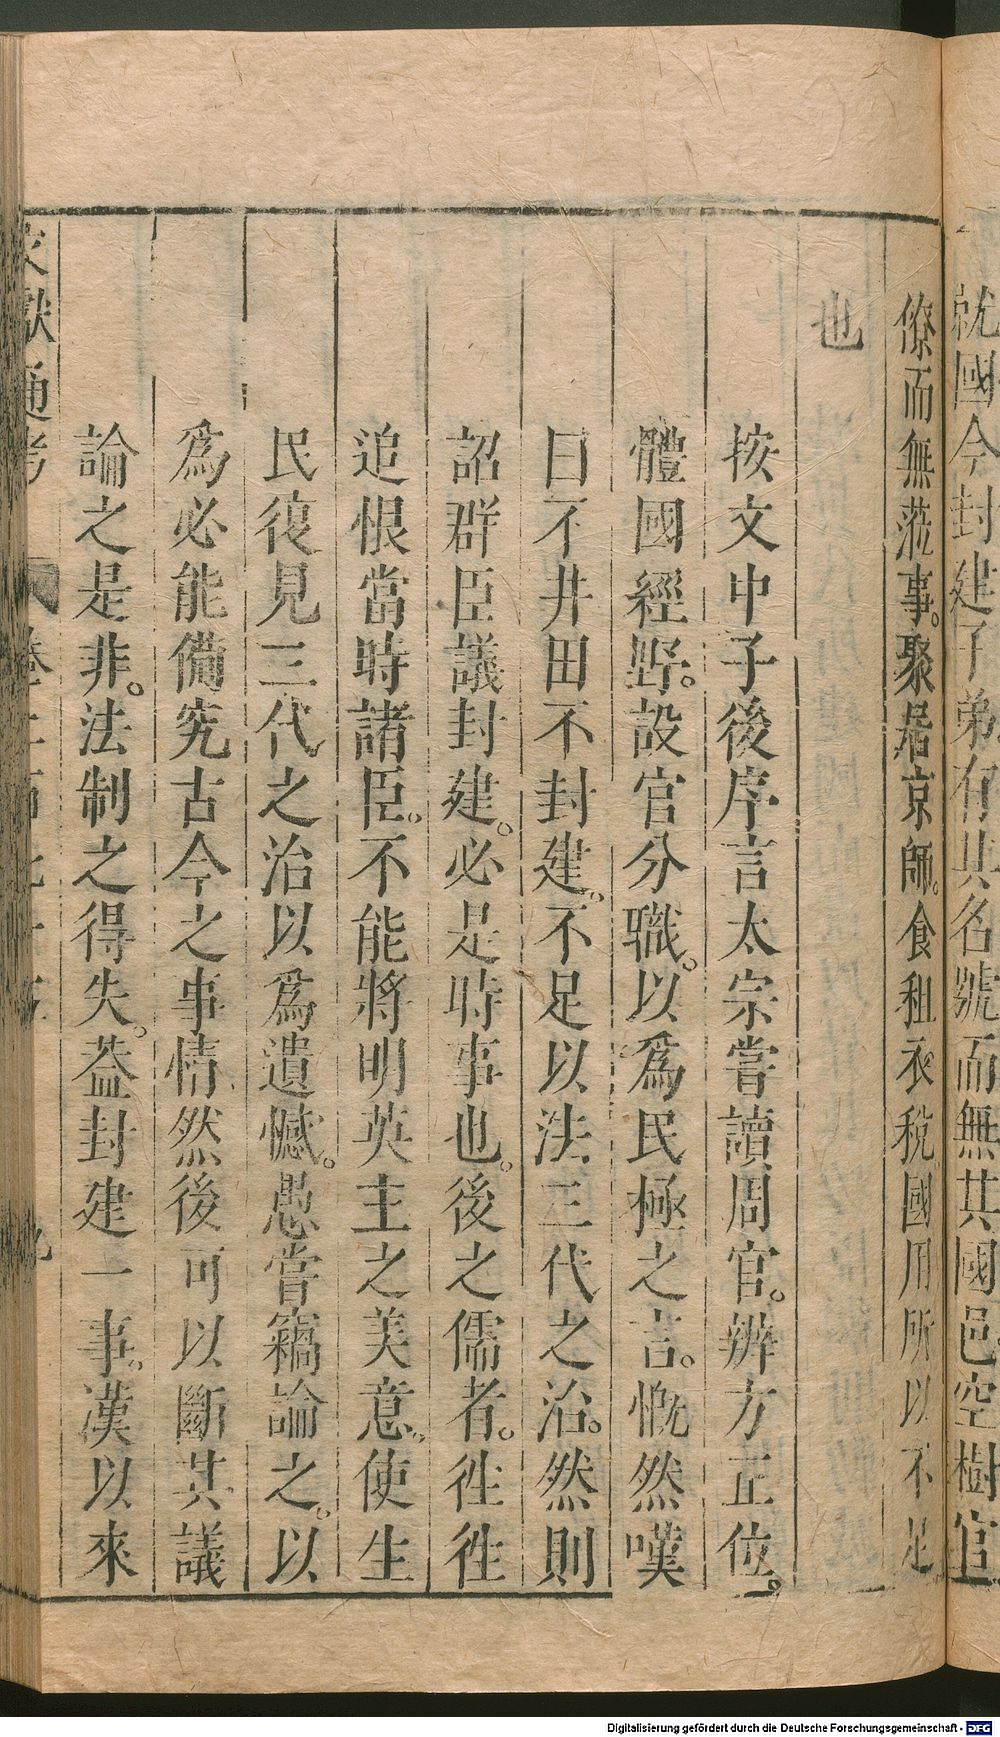 就國今封建子弟有其名號而無其國邑空樹官
僚而無蒞事。聚居京師。食租衣稅。國用所以不足
也
按文中子後序言太宗嘗讀周官。辨方正位。
體國經野。設官分職。以爲民極之言。慨然嘆
曰不井田不封建。不足以法三代之治。然則
詔群臣議封建。必是時事也。後之儒者。徃徃
追恨當時諸臣。不能將明英主之美意。使生
民復見三代之治以爲遺憾。愚嘗竊論之。以
爲必能備究古今之事情然後可以斷其議
論之是非。法制之得失。葢封建一事。漢以來
文獻通考 卷二百七十五 九
Digitalisierung gefördert durch die Deutsche Forschungsgemeinschaft - DFG